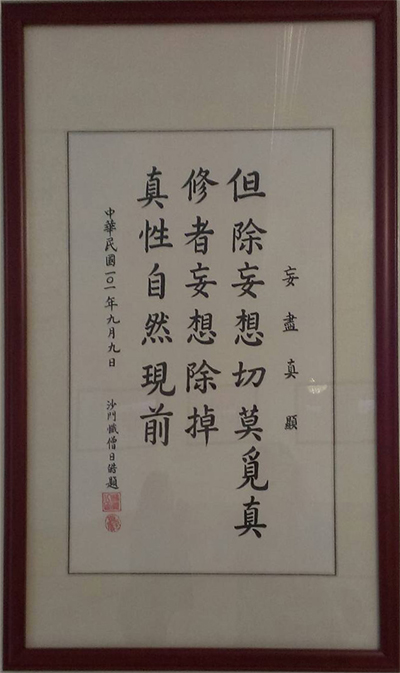 妄盡真顯
但除妄想切莫覓真
修者妄想除掉
真性自然現前
中華民國一〇一年九月九日
沙門懺僧日題